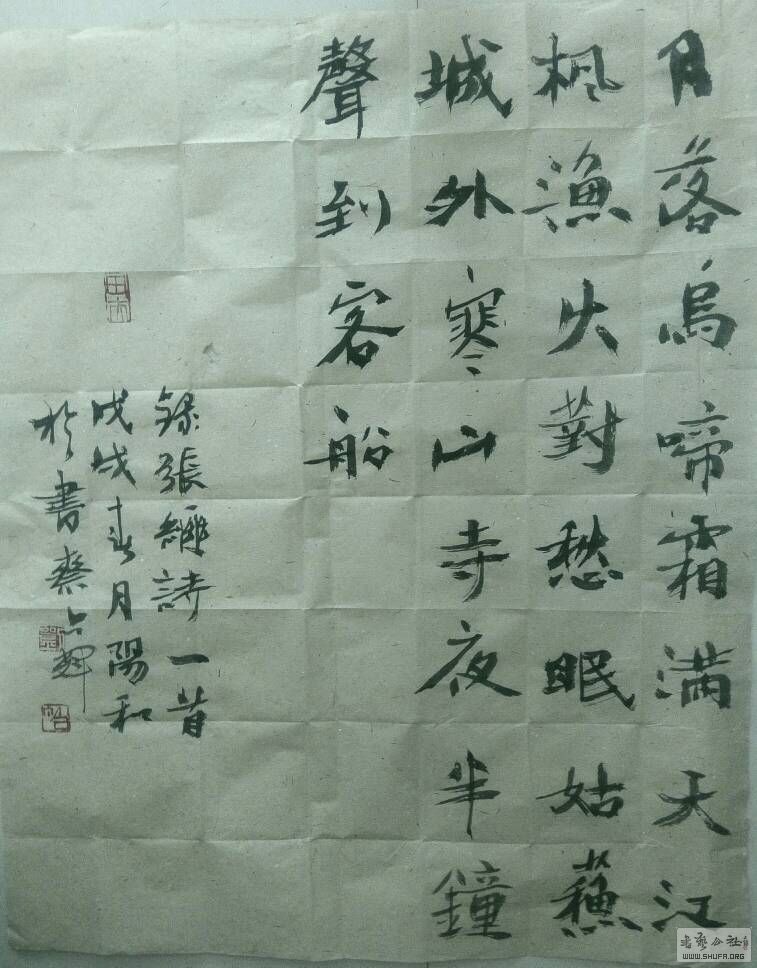 月落烏啼霜满天江
枫漁火對愁眠姑蘓
城外寒山寺夜半鐘
聲到客船
録張継詩一首
戊戌春月陽和
於書齋
书艺公社
WWW.SHUFA.ORG